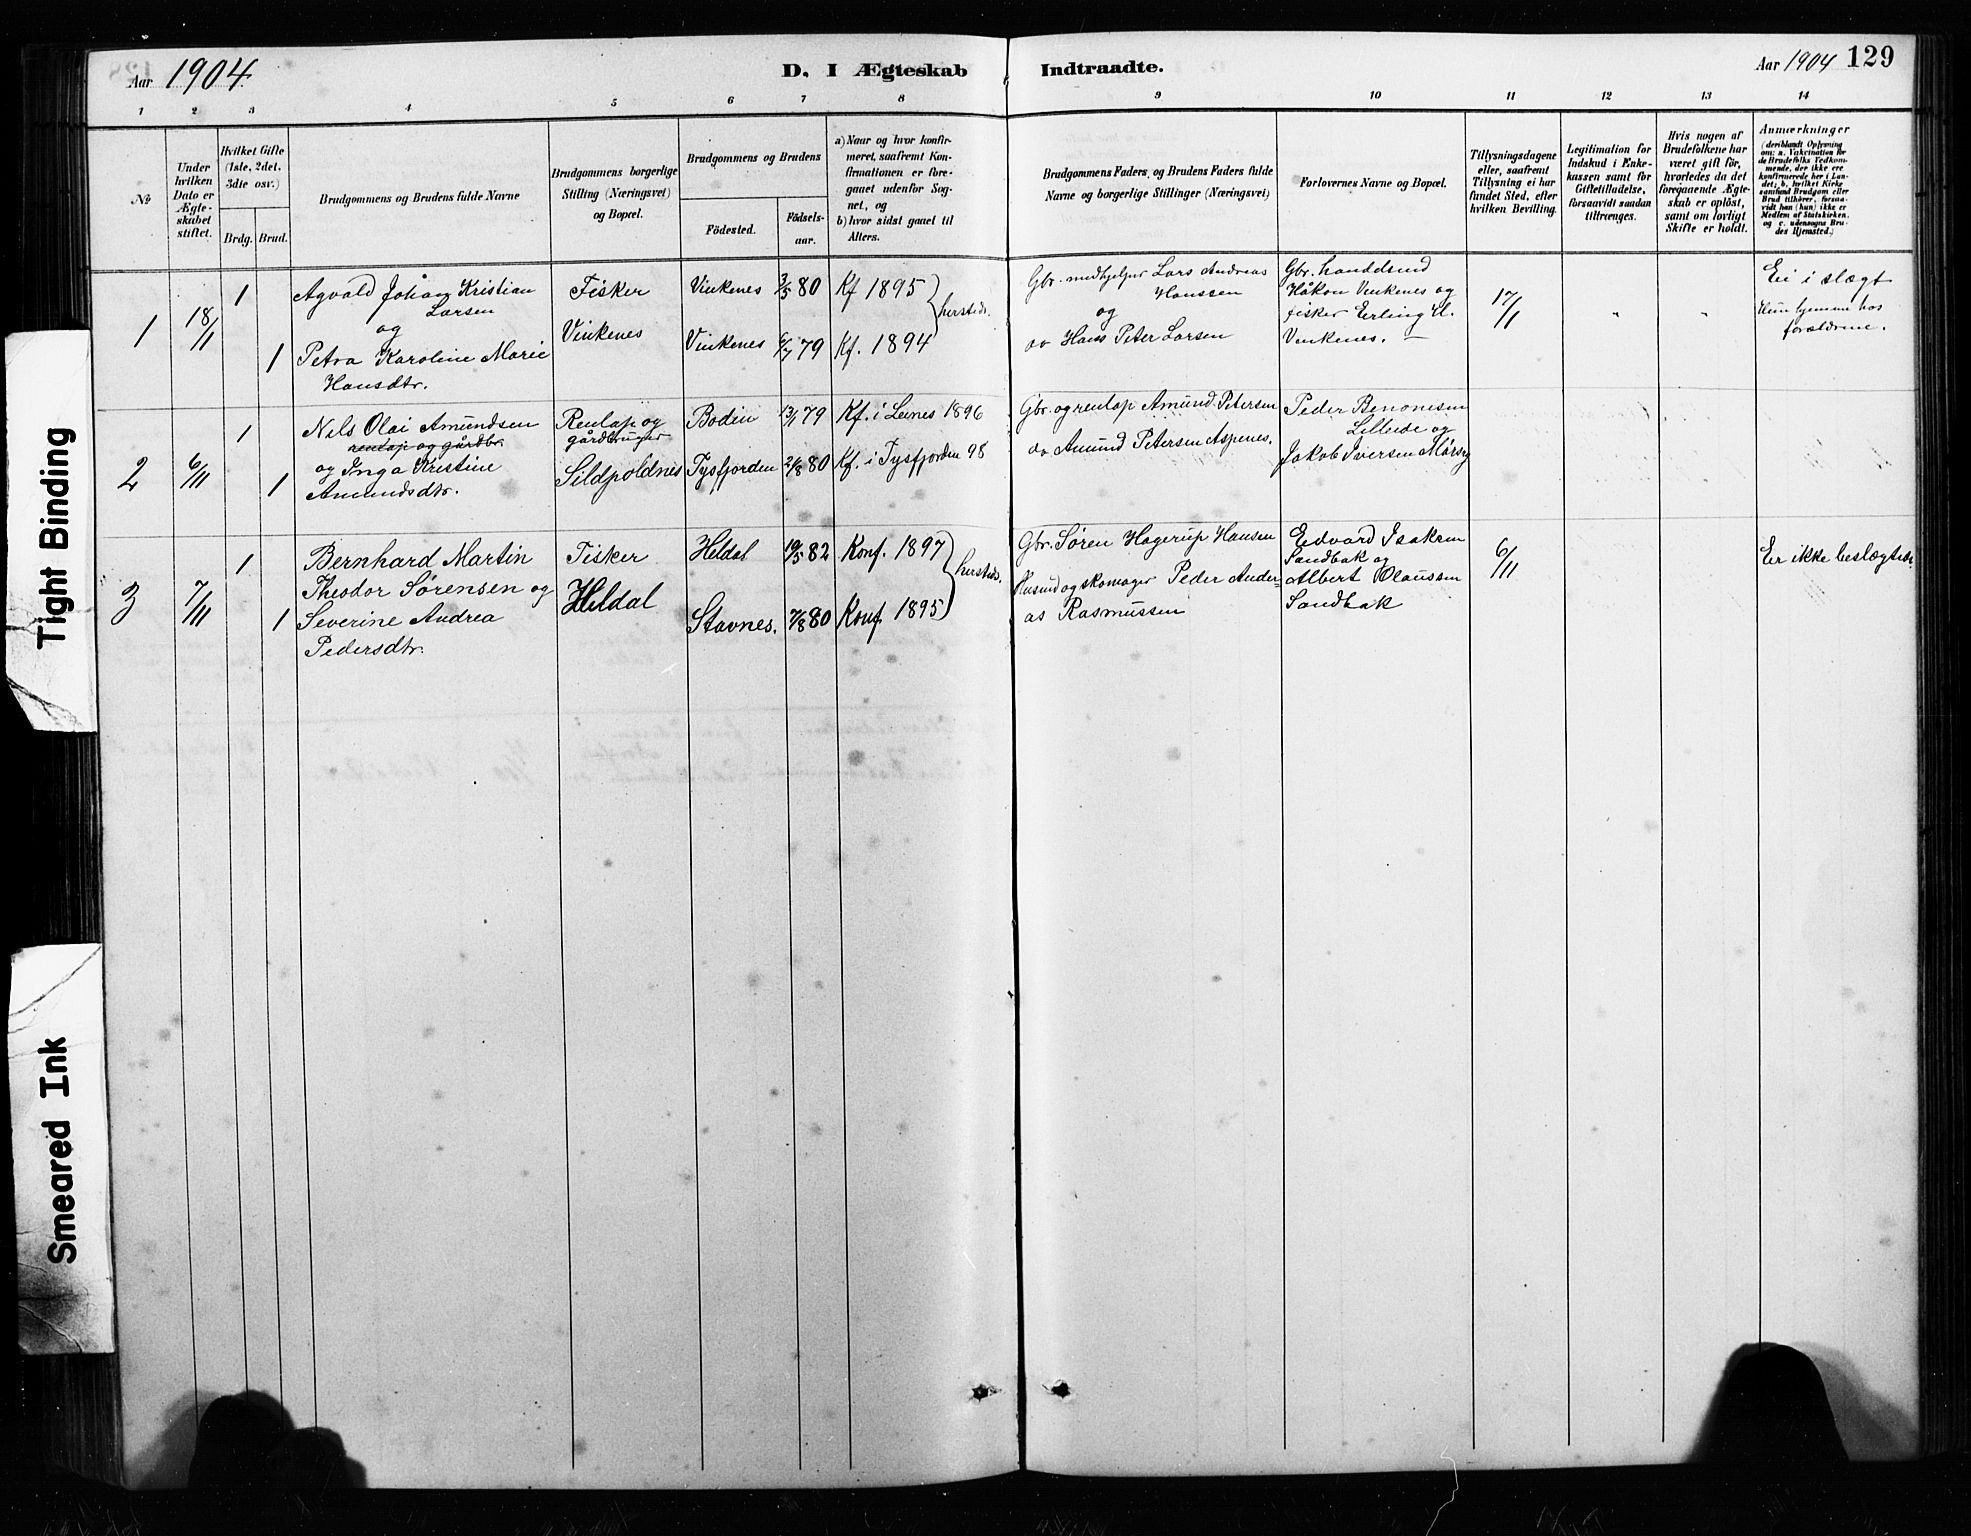 Aar 1904.
D. I Ægteskab
Indtraadte.
Aar 1904
129
1 2 3 4 5 6 7 8 9 10 11 12 13 14
No
Under
hvilken
Dato er
Ægte-
skabet
stiftet.
Hvilket Gifte
(1ste, 2det,
3die osv.)
Brdg. Brud.
Brudgommens og Brudens fulde Navne
Brudgommens borgerlige
Stilling (Næringsvei)
og Bopæl.
Brudgommens og Brudens
Fødested.
Fødsels-
aar.
a) Naar og hvor konfir-
meret, saafremt Kon-
firmationen er fore-
gaaet udenfor Sog-
net, og
b) hvor sidst gaaet til
Alters.
Brudgommens Faders, og Brudens Faders fulde
Navne og borgerlige Stillinger (Næringsvei)
Forlovernes Navne og Bopæl.
Tillysningsdagene
eller, saafremt
Tillysning ei har
fundet Sted, efter
hvilken Bevilling.
Legitimation for
Indskud i Enke-
kassen samt for
Giftetilladelse,
forsaavidt saadan
tiltrænges.
Hvis nogen af
Brudefolkene har
været gift før,
hvorledes da det
foregaaende Ægte-
skab er opløst,
samt om lovligt
Skifte er holdt.
Anmærkninger
(deriblandt Oplysning
om: a. Vakcination for
de Brudefolks Vedkom-
mende, der ikke ere
konfirmerede her i Lan-
det; b. hvilket Kirke
samfund Brudgom eller
Brud tilhører, forsaa-
vidt han (hun) ikke er
Medlem af Statskirken,
og c. udensogns Bru-
des Hjemsted.)
1
18/1
1
1
Agvald Johan Kristian
Larsen
og
Petra Karoline Marie
Hansdtr.
Fisker
Vinkenes
Vinkenes 3/5 80
Vinkenes 6/7 79
Kf 1895
Kf. 1894
hersteds.
Gbr. medhjelper Lars Andreas
Hanssen
og
do Hans Peter Larsen
Gbr.
Håkon Vinkenes og
fisker Erling H.
Vinkenes.
17/1
"
"
Ei i slægt
Hun hjemme hos
forældrene.
2
6/11
1
1
Nils Olai Amundsen
renlap og gårdbr.
og Inga Kristine
Amundsdtr.
Renlap og
gårdbruger
Sildpoldnes
Bodin 13/1 79
Tysfjorden 2/8 80
Kf. i Leines 1896
Kf. i Tysfjorden 98
Gbr. og renlap Amund Petersen
do Amund Petersen Aspenes.
Peder Benonisen
og
Jakob Iversen
3
7/11
1
1
Bernhard Martin
Theodor Sørensen og
Severine Andrea
Pedersdtr.
Fisker
Heldal
Heldal 19/5 82
Stavnes. 7/8 80
Konf. 1897
Konf. 1895
hersteds.
Gbr. Søren Hagerup Hansen
Husmd og skomager Peder Ander=
as Rasmussen
Edvard Isaksen
Sandbak og
Albert Olaussen
Sandbak
6/11
Er ikke beslægtede.
Tight Binding
Smeared Ink